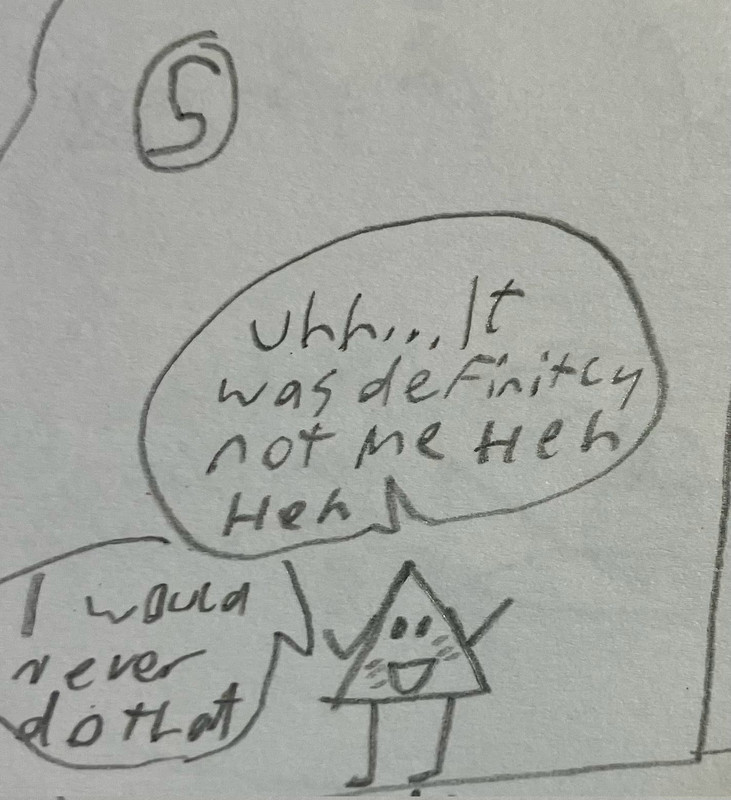 5
Uhh... It
was definitcy
not Me Heh
Heh
I would
never
do that